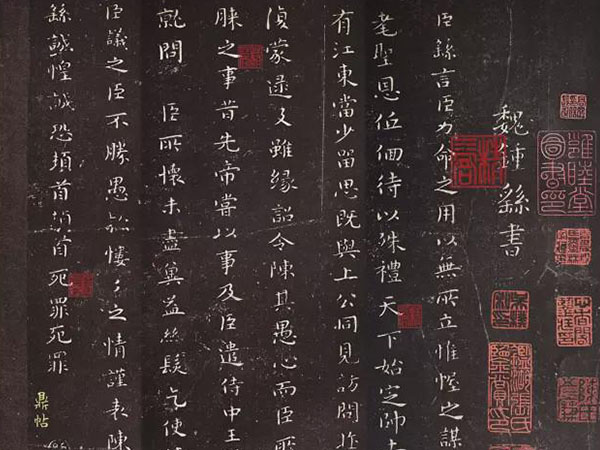 魏鍾繇書
臣繇言臣力命之用以無所立惟幄之謀
耄聖恩低佪待以殊禮天下始定帥土
有江東當少留思既與上公同見訪問
蒙逮及雖緣詔令陳其愚心而臣所
之事昔先帝嘗以事及臣遣侍中王
就問 臣所懷未盡冀益絲髮乞使
臣議之臣不勝愚款慺々之情謹表陳
繇誠惶誠恐頓首頓首死罪死罪
鼎帖